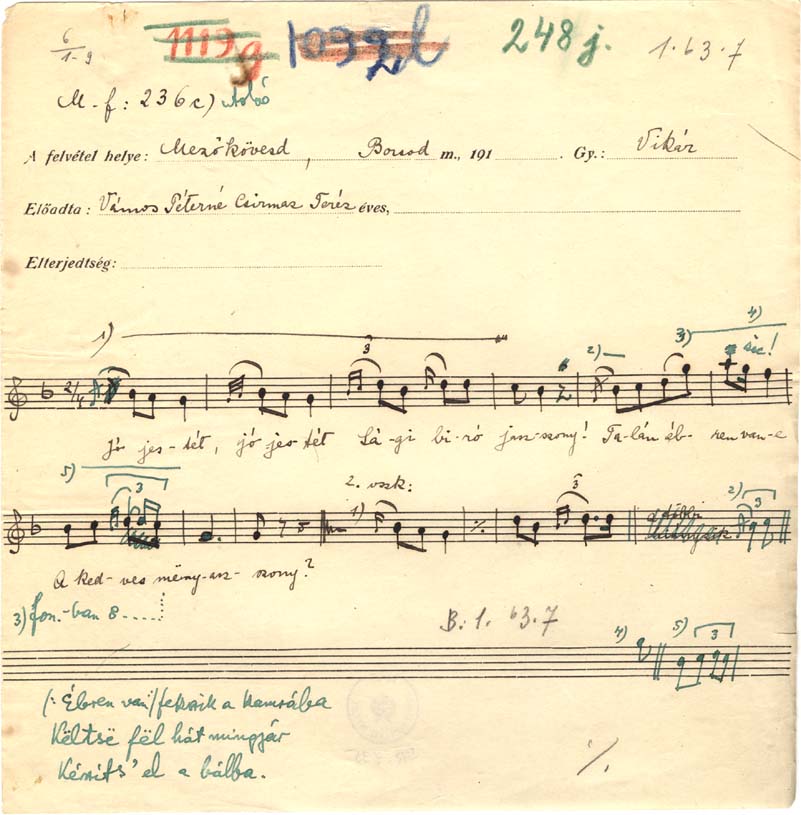 6
1-9
1113 g
1032 b
248 j.
1.63.7
M.-f: 236c) utolsó
A felvétel helye: Mezőkövesd, Borsod m., 191 . Gy.: Vikár
Előadta: Vámos Péterné Csirmaz Teréz éves,
Elterjedtség:
1) 3 2) 3) 4)
sic!
2/4
Jó jes-tét, jó jes-tét Sá-gi bi-ró jasz-szony! Ta-lán éb-ren van-e
5) 3 2. vszk: 1) 3 2) 3
A ked-ves mëny-asz-szony?
3) fon.-ban 8
B: 1. 63.7
4) 5) 3
(: Ébren van :) fekszik a kamrába
Këltsë fël hát mingyár
Készits' el a bálba.
%